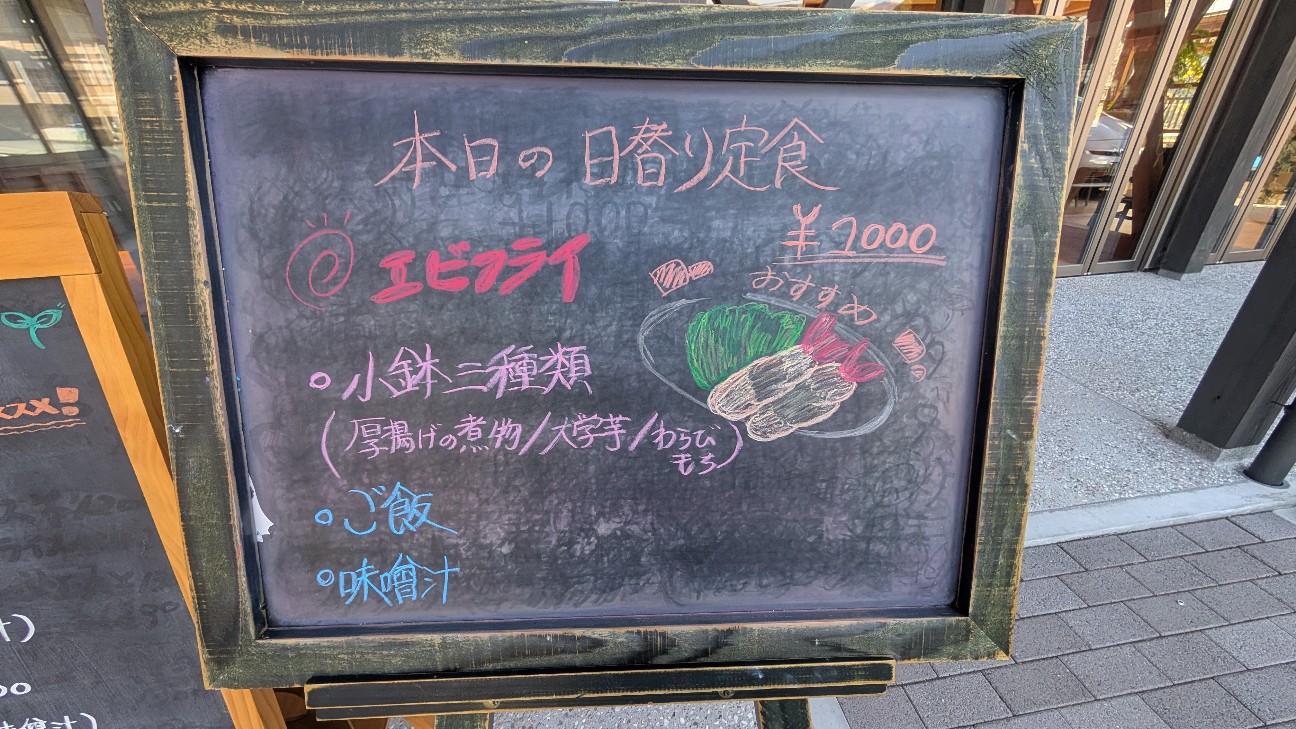 本日の日替り定食
¥2000
エビフライ
おすすめ
小鉢三種類
(厚揚げの煮物/大学芋/わらび
もち)
ご飯
味噌汁
ススメ!
汁)
00
味噌汁)